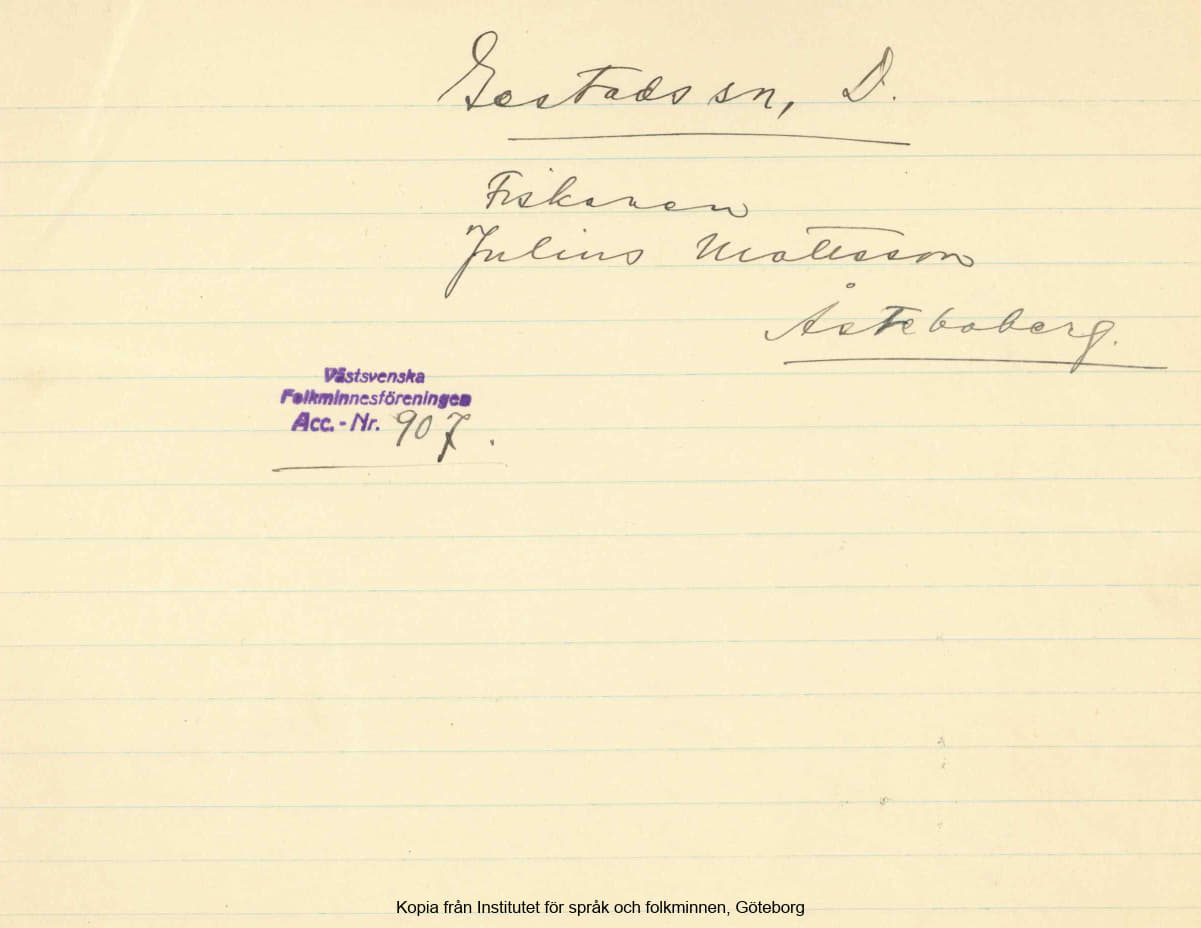 Gestads sn, D.
Fiskaren
Julius Mattsson
Åsteboberg.
Västsvenska
Folkminnesföreningen
Acc. - Nr. 907.
Kopia från Institutet för språk och folkminnen, Göteborg